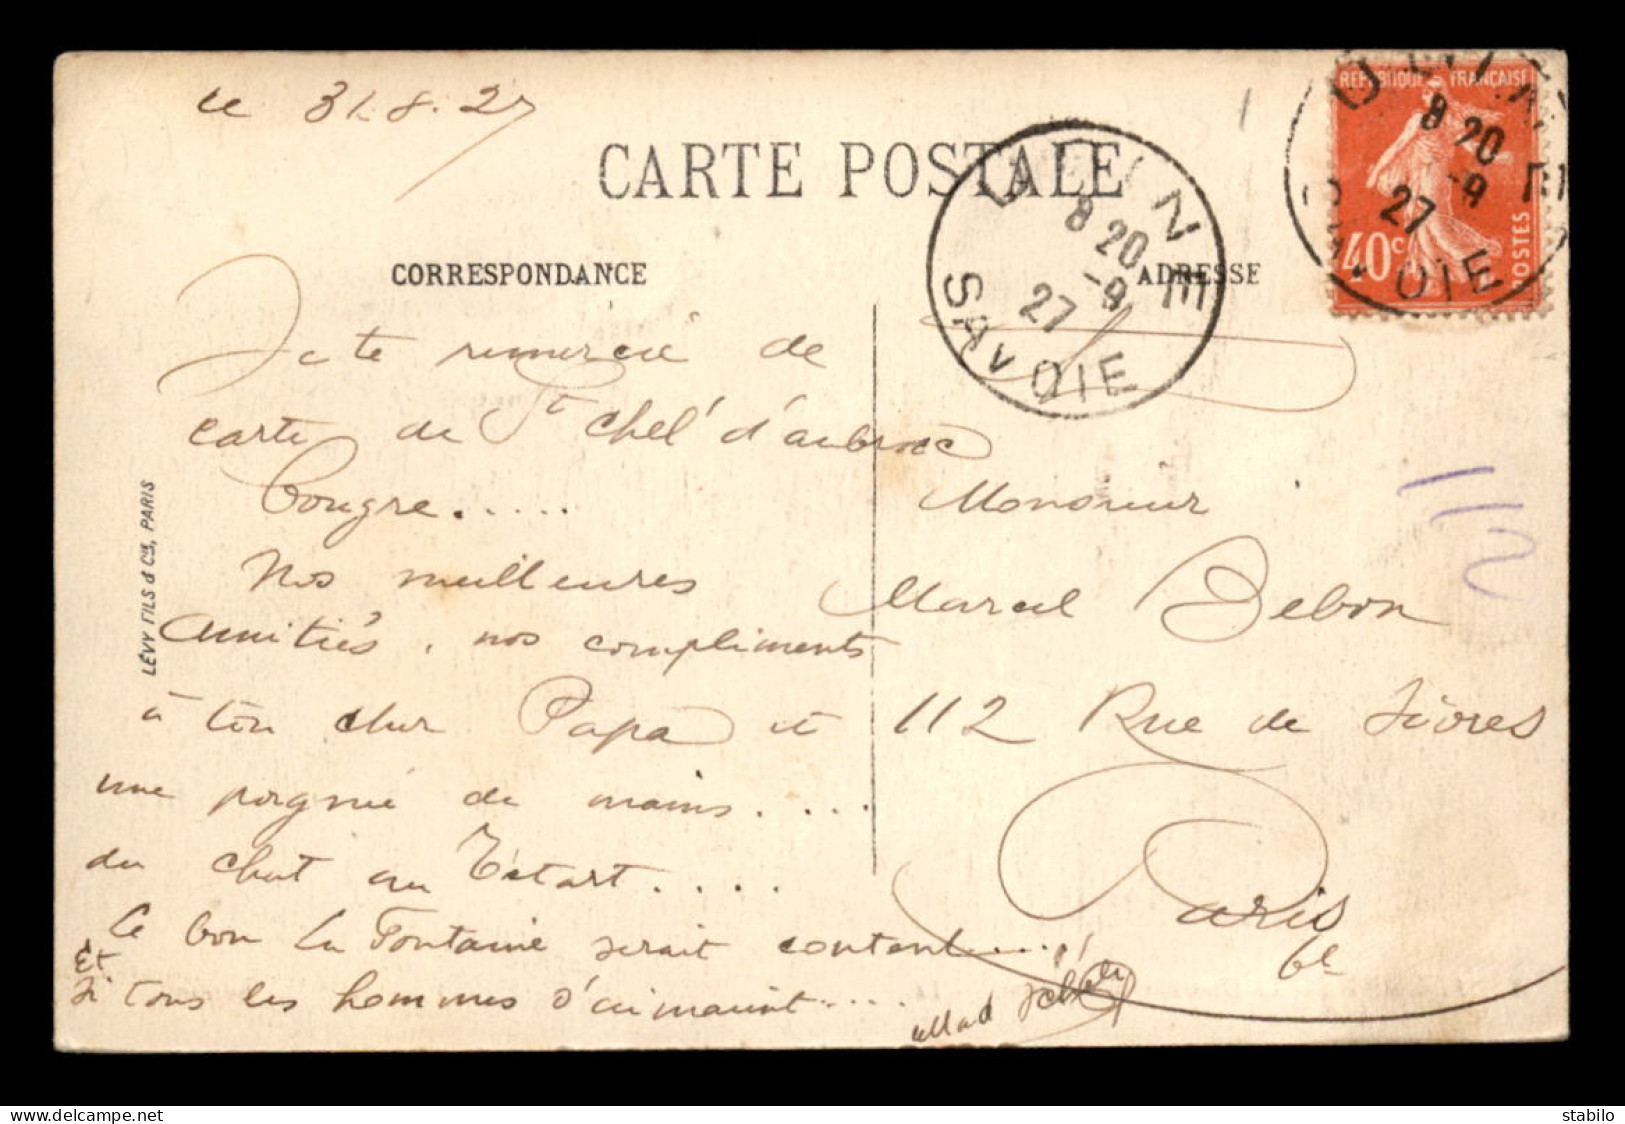 le 31.8.27
CARTE POSTALE
CORRESPONDANCE
ADRESSE
Je te remercie de
carte de St Chel' d'aubrac
Bougre.....
Nos meilleures
Amitiés, nos compliments
à ton cher Papa et
une poignée de mains....
du chat au Tétart....
Ce bon La Fontaine serait content....!
Et
Si tous les hommes s'aimaient....
Monsieur
Marcel Debon
112 Rue de Sèvres
Paris
6e
LÉVY FILS & Cie, PARIS
REPUBLIQUE FRANÇAISE
40c
POSTES
8 20
-9
27
SAVOIE
8 20
-9
27
OIE
112
stabilo
delcampe.net